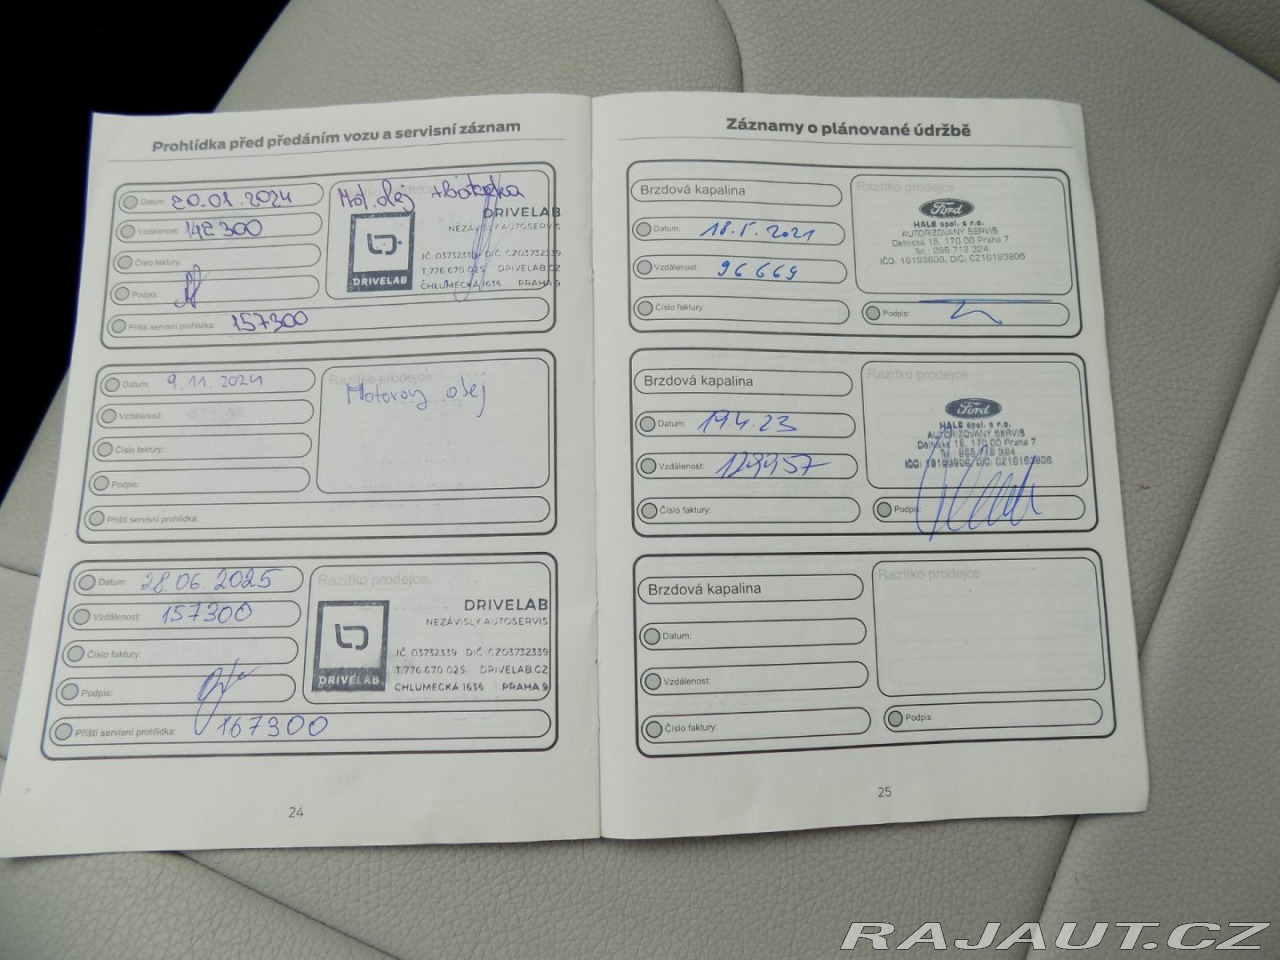 Prohlídka před předáním vozu a servisní záznam
Datum: 20.01.2024
Vzdálenost: 142300
Číslo faktury:
Podpis:
Příští servisní prohlídka: 157300
Razítko prodejce
Mot. olej
DRIVELAB
NEZÁVISLÝ AUTOSERVIS
IČ 03732339 DIČ CZ03732339
T.776 670 025 DRIVELAB.CZ
CHLUMECKÁ 1636 PRAHA 9
DRIVELAB
Datum: 9.11.2024
Vzdálenost:
Číslo faktury:
Podpis:
Příští servisní prohlídka:
Razítko prodejce
Motorový olej
Datum: 28.06.2025
Vzdálenost: 157300
Číslo faktury:
Podpis:
Příští servisní prohlídka: 167300
Razítko prodejce
DRIVELAB
NEZÁVISLÝ AUTOSERVIS
IČ 03732339 DIČ CZ03732339
T.776 670 025 DRIVELAB.CZ
CHLUMECKÁ 1636 PRAHA 9
DRIVELAB
24
Záznamy o plánované údržbě
Brzdová kapalina
Datum: 18.5.2021
Vzdálenost: 96669
Číslo faktury:
Razítko prodejce
Ford
HALE spol. s r.o.
AUTORIZOVANÝ SERVIS
Dělnická 15, 170 00 Praha 7
Tel.: 266 712 324
IČO: 16193806, DIČ: CZ16193806
Podpis:
Brzdová kapalina
Datum: 19.4.23
Vzdálenost: 129957
Číslo faktury:
Razítko prodejce
Ford
HALE spol. s r.o.
AUTORIZOVANÝ SERVIS
Dělnická 15, 170 00 Praha 7
IČO: 16193806, DIČ: CZ16193806
Podpis:
Brzdová kapalina
Datum:
Vzdálenost:
Číslo faktury:
Razítko prodejce
Podpis:
25
RAJAUT.CZ